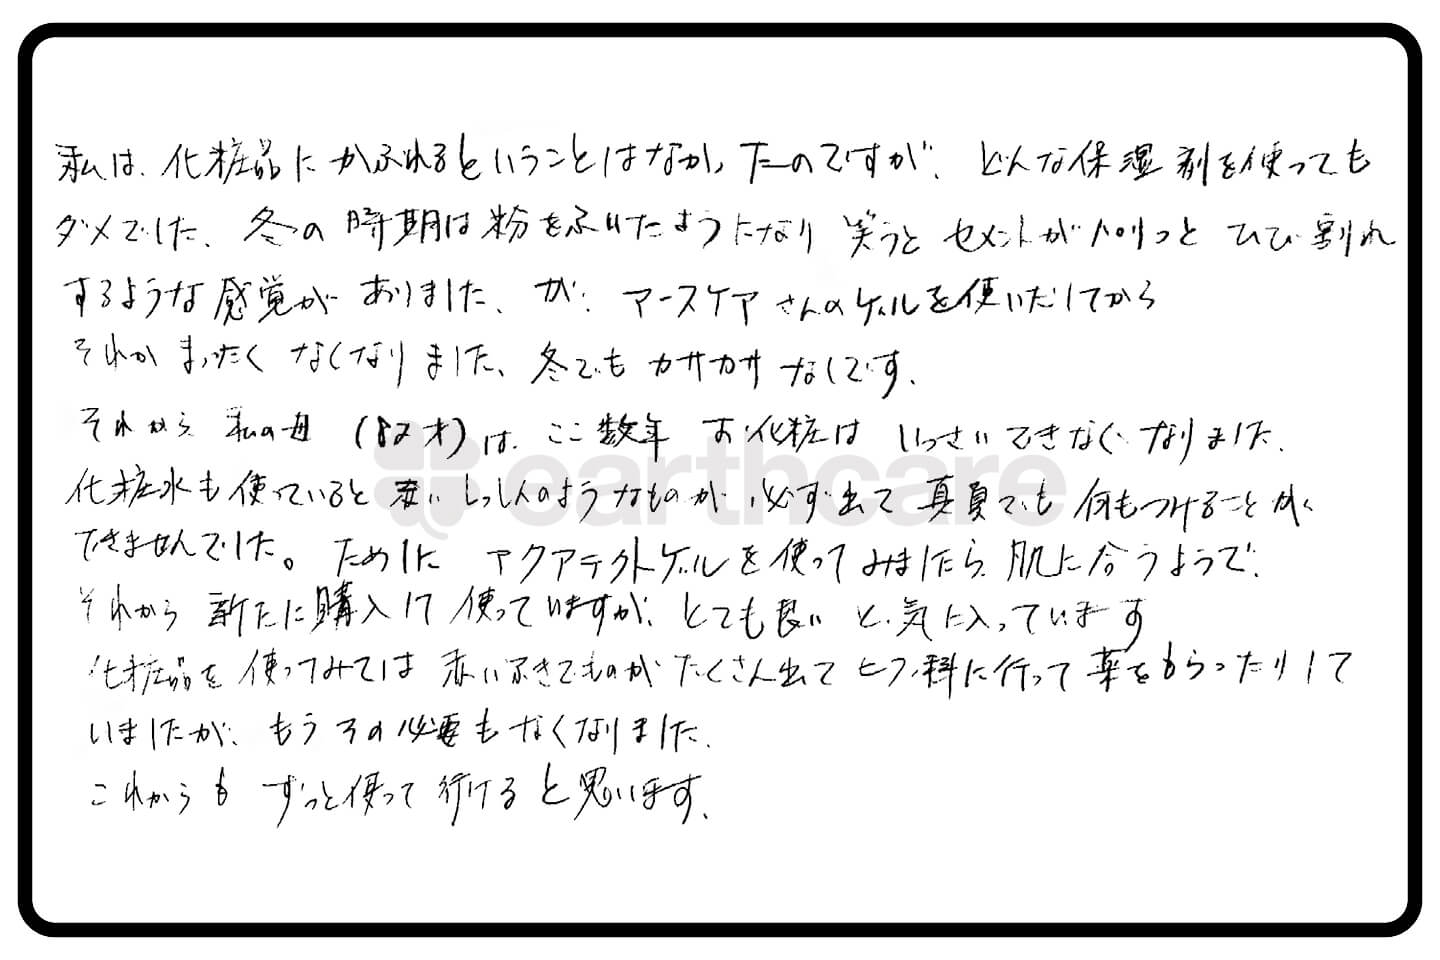 私は、化粧品にかぶれるということはなかったのですが、どんな保湿剤を使っても
ダメでした、冬の時期は粉をふいたようになり笑うとセメントがパリっとひび割れ
するような感覚がありました、が、アースケアさんのゲルを使いだしてから
それがまったくなくなりました、冬でもカサカサなしです、
それから私の母(82才)は、ここ数年お化粧はいっさいできなくなりました、
化粧水も使っていると赤いしっしんのようなものが必ず出て真夏でも何もつけることが
できませんでした。ためしにアクアテクトゲルを使ってみましたら、肌に合うようで、
それから新たに購入して使っていますが、とても良いと気に入っています
化粧品を使ってみては赤いふきでものがたくさん出てヒフ科に行って薬をもらったりして
いましたが、もうその必要もなくなりました、
これからもずっと使って行けると思います、
earthcare